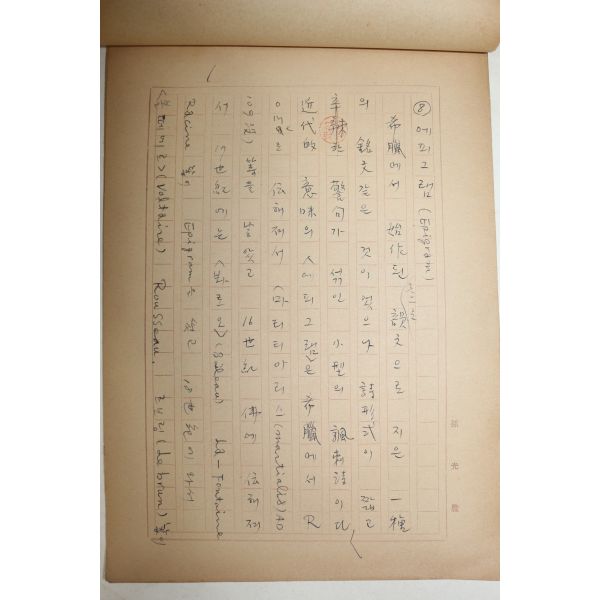 ⑧ 에피그램 (Epigram)
希臘에서 始作된 韻文으로 지은 一種
의 銘文같은 것이 었으나 詩形式이 짧고
辛辣한 警句가 섞인 小型의 諷刺詩이다
近代的 意味의 에피그램은 希臘에서 R
으로 伝해져서 (마티아리스 (martialis) AD
等을 낳았고 16世紀 佛에 伝해져
서 17世紀에는 <봐로오> (Boileau) La-Fontaine
Racine 等이 Epigram을 썼고 18世紀에 와서
(Voltaire) Rousseau. 르브렁 (Le brun) 等이